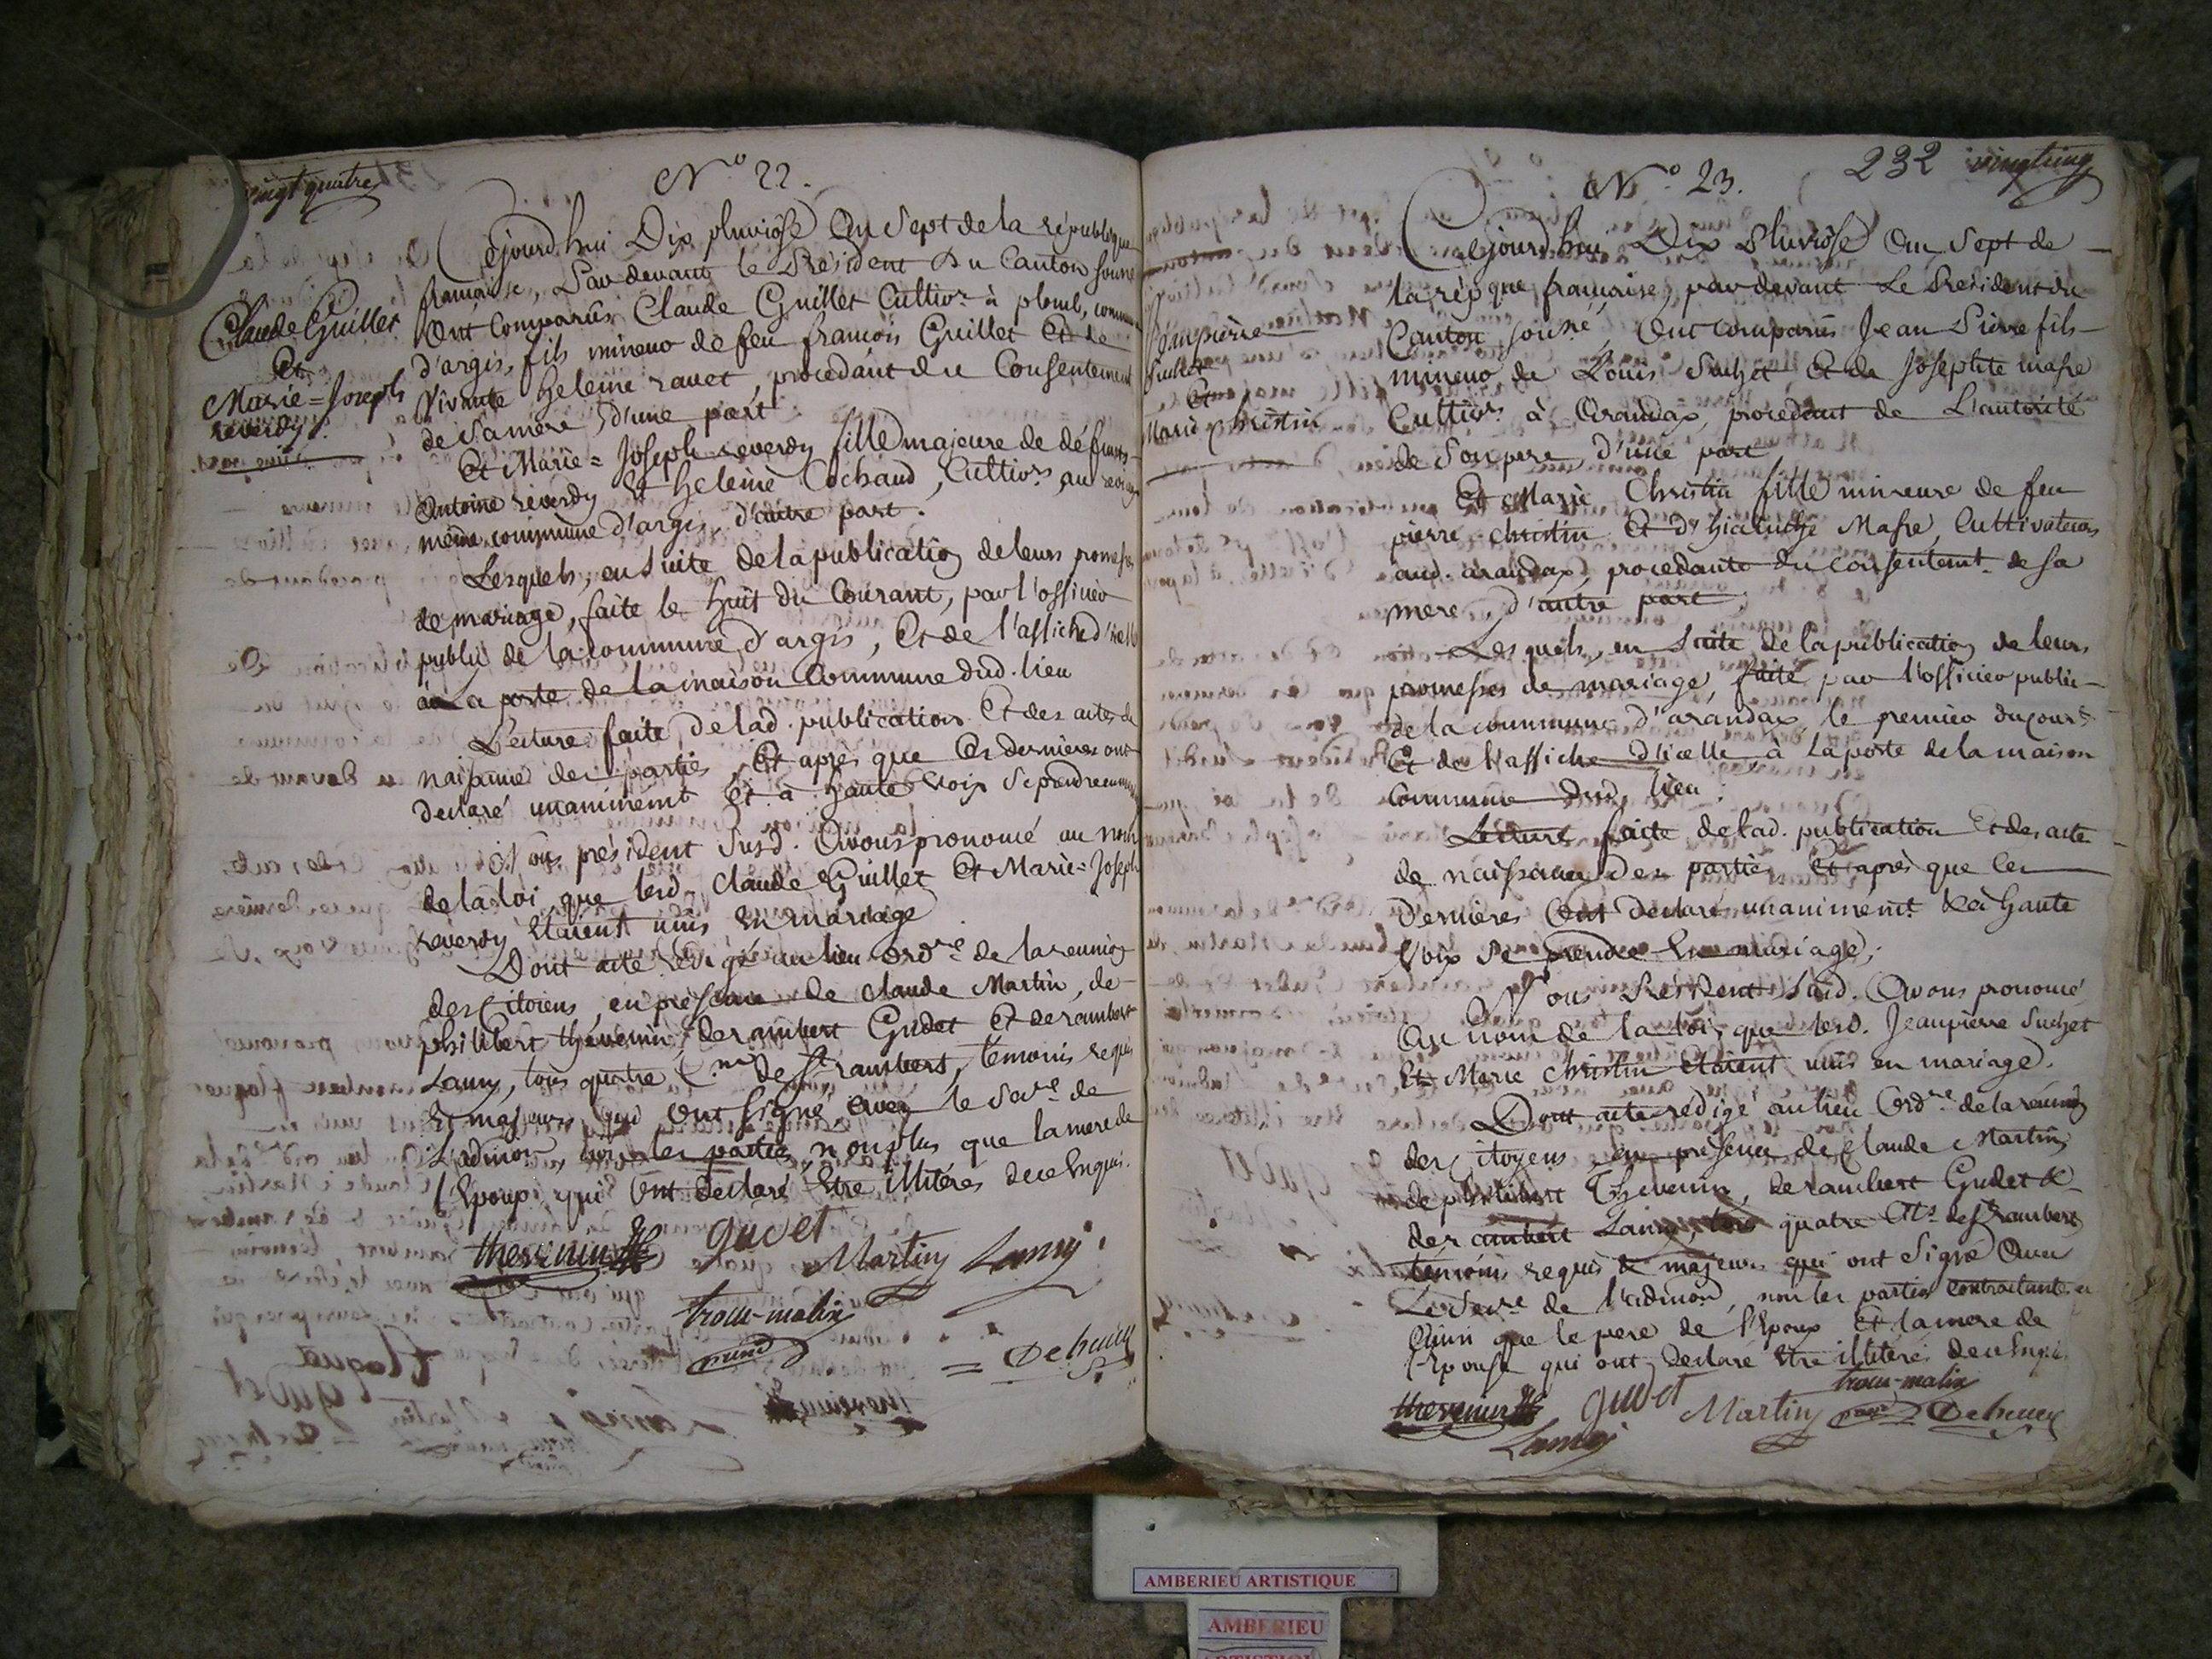 vingt quatre
N.o 22.
Claude Guillet
Et
Marie = Joseph
reverdy.
Cejourd'hui Dix pluviôse an Sept de la république
française, Par devant le Président du Canton sousné
Ont Comparûs Claude Guillet Cultivr. à plomb, commune
d'argis, fils mineur de feu francois Guillet Et de
Vivante heleine ravet, procedant du Consentement
de Sa mère, d'une part
Et Marie = Joseph reverdy fille majeure de défunts
Antoine reverdy Et heleine Cochaud, Cultivrs. au
même commune d'argis, d'autre part.
Lesquels, en suite de la publication de leurs promesses
de mariage, faite le huit du Courant, par l'officier
public de la commune d'argis, Et de l'affiche d'icelle
à La porte de la maison Commune dud. lieu
Lecture faite de lad. publication Et des actes de
naissance des parties, Et après que Ces dernieres ont
declaré unaninemt Et à haute voix Se prendre en
Nous président Susd. Avons prononcé au nom
de la loi, que lesd. Claude Guillet Et Marie = Joseph
reverdy Etaient unis En mariage
Dont acte rédigé au lieu ordre de la reunion
des Citoiens, en présence de Claude Martin, de
philibert thévenin, de rambert Gudet Et de rambert
Lamy, tous quatre de St rambert, témoins requis
Et majeurs qui Ont signé avec le Secre de
L'admon, non les parties, non plus que la mere de
l'Epoux, qui Ont declaré Etre illitérés de ce Enquis.
thevenin
gudet
Martin
Lamy
trocu-matin
Debeney
232
vingt cinq
N.o 23.
Jeanpierre
Suchet
Et
Marie Christin
Cejourd'hui Dix Pluviôse an Sept de
la répque française, par devant Le Président du
Canton sousné, Ont comparus Jean Pierre fils
mineur de Louis Suchet Et de Josephte masse
Cultivrs. à Arandax, procedant de L'autorité
de Son pere, d'une part
Et Marie Christin fille mineure de feu
pierre christin Et d'hiacinthe Masse, Cultivateurs
aud. arandax, procedante du Consentemt. de sa
mere, d'autre part;
Lesquels, en suite de la publication de leurs
promesses de mariage, faite par l'officier public
de la commune d'arandax, le premier du courst
Et de l'affiche d'icelle, à La porte de la maison
Commune dud. lieu;
Lecture faite de lad. publication Et des acte
de naissance des parties Et après que Ces
Dernières Ont declaré unaninemt. & à haute
Voix Se prendre En mariage;
Nous Président Susd. Avons prononcé
Au nom de la loi, que lesd. Jeanpierre Suchet
Et Marie Christin Etaient unis en mariage.
Dont acte rédigé au lieu Ordre de la réunion
des Citoyens, en présence de Claude Martin,
de philibert Thevenin, de rambert Gudet &
de rambert Lamy, tous quatre de St rambert
témoins requis & majeurs qui ont Signé Avec
Le Secre de l'admon, non les parties contractantes
Ainsi que le pere de l'Epoux Et la mere de
l'Epouse qui ont declaré Etre illitérés de ce Enquis
thevenin
gudet
Martin
trocu-matin
Debeney
Lamy
AMBERIEU ARTISTIQUE
AMBERIEU
ARTISTIQUE